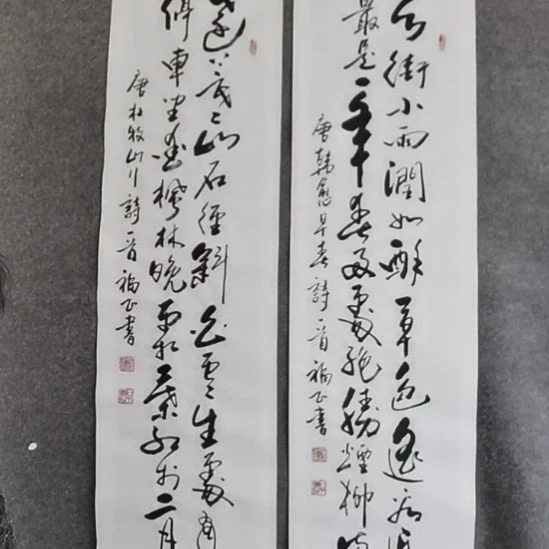 天街小雨潤如酥草色遥看近
最是一年春好處絶勝煙柳滿
唐韓愈早春詩一首福正書
遠上寒山石徑斜白雲生處有
停車坐愛楓林晚霜葉紅於二月
唐杜牧山行詩一首福正書